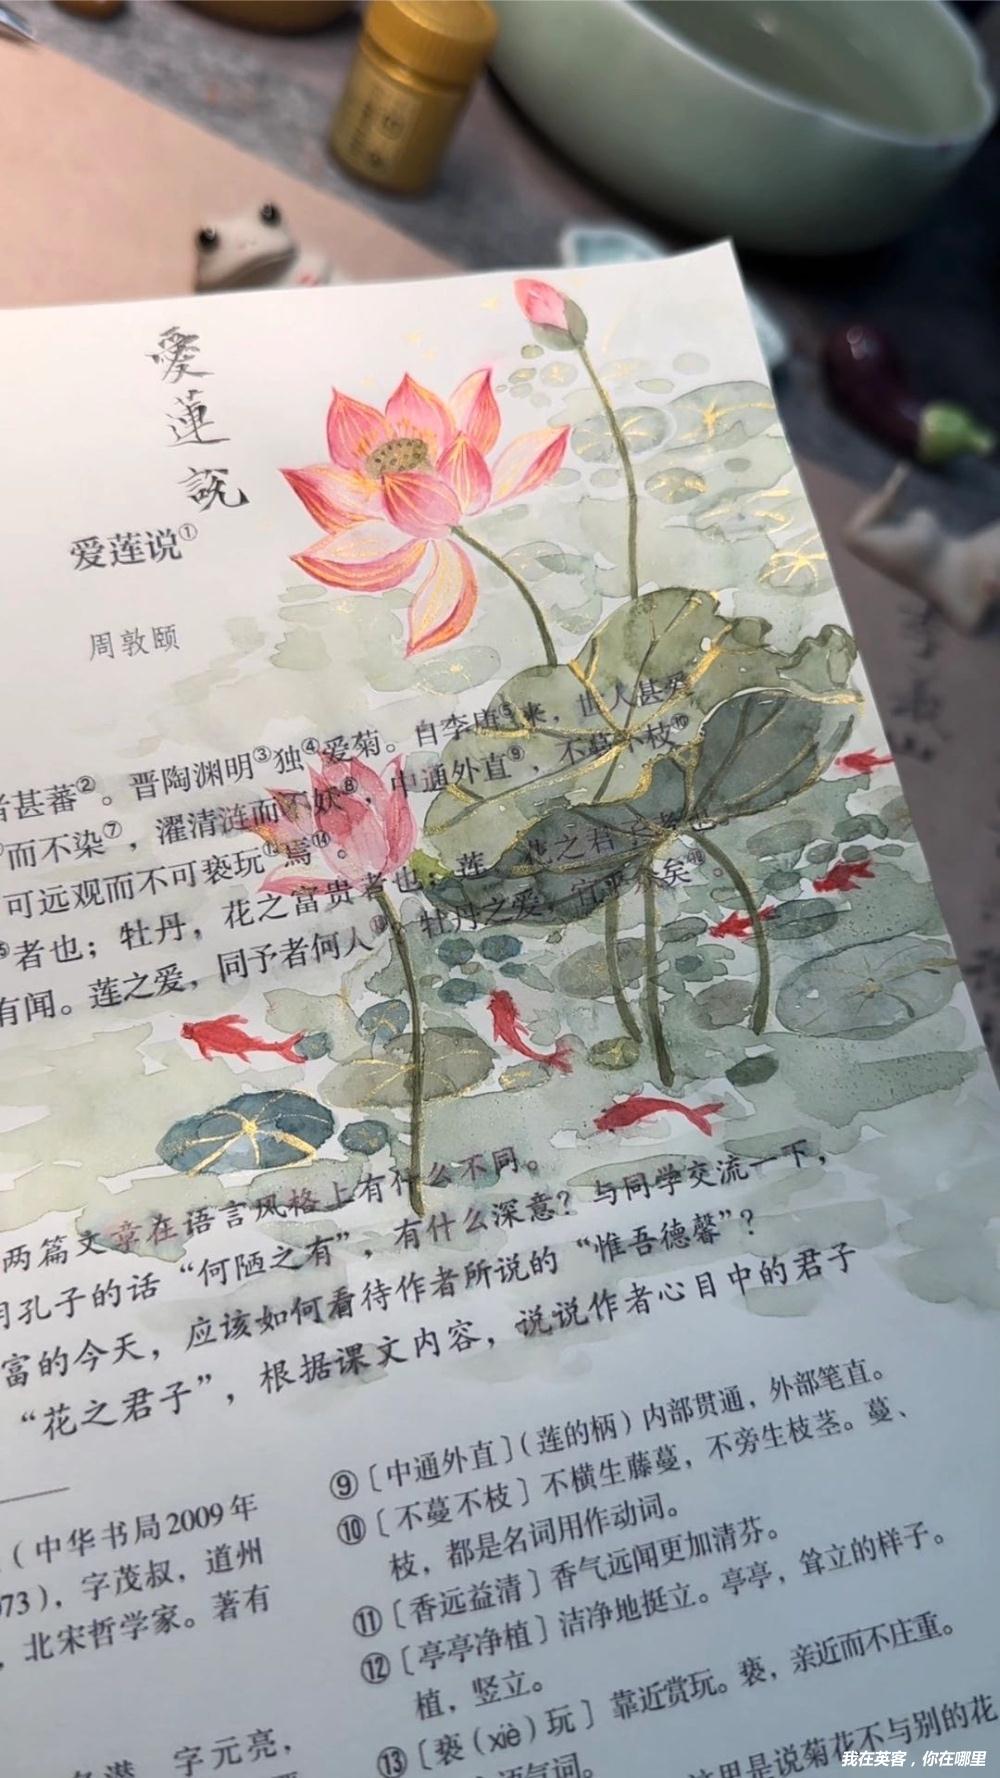 愛蓮説
爱莲说①
周敦颐
甚蕃②。晋陶渊明③独④爱菊。自李唐⑤来，世人甚爱
而不染⑦，濯清涟而不妖⑧，中通外直⑨，不蔓不枝⑩
可远观而不可亵玩⑬焉⑭。
者也；牡丹，花之富贵者也；莲，花之君子者也
有闻。莲之爱，同予者何人？牡丹之爱，宜乎众矣。
两篇文章在语言风格上有什么不同。
孔子的话“何陋之有”，有什么深意？与同学交流一下，
富的今天，应该如何看待作者所说的“惟吾德馨”？
“花之君子”，根据课文内容，说说作者心目中的君子
（中华书局2009年
073），字茂叔，道州
，北宋哲学家。著有
字元亮，
⑨〔中通外直〕（莲的柄）内部贯通，外部笔直。
⑩〔不蔓不枝〕不横生藤蔓，不旁生枝茎。蔓、
枝，都是名词用作动词。
⑪〔香远益清〕香气远闻更加清芬。
⑫〔亭亭净植〕洁净地挺立。亭亭，耸立的样子。
植，竖立。
⑬〔亵（xiè）玩〕靠近赏玩。亵，亲近而不庄重。
语气词。
里是说菊花不与别的花
我在英客，你在哪里